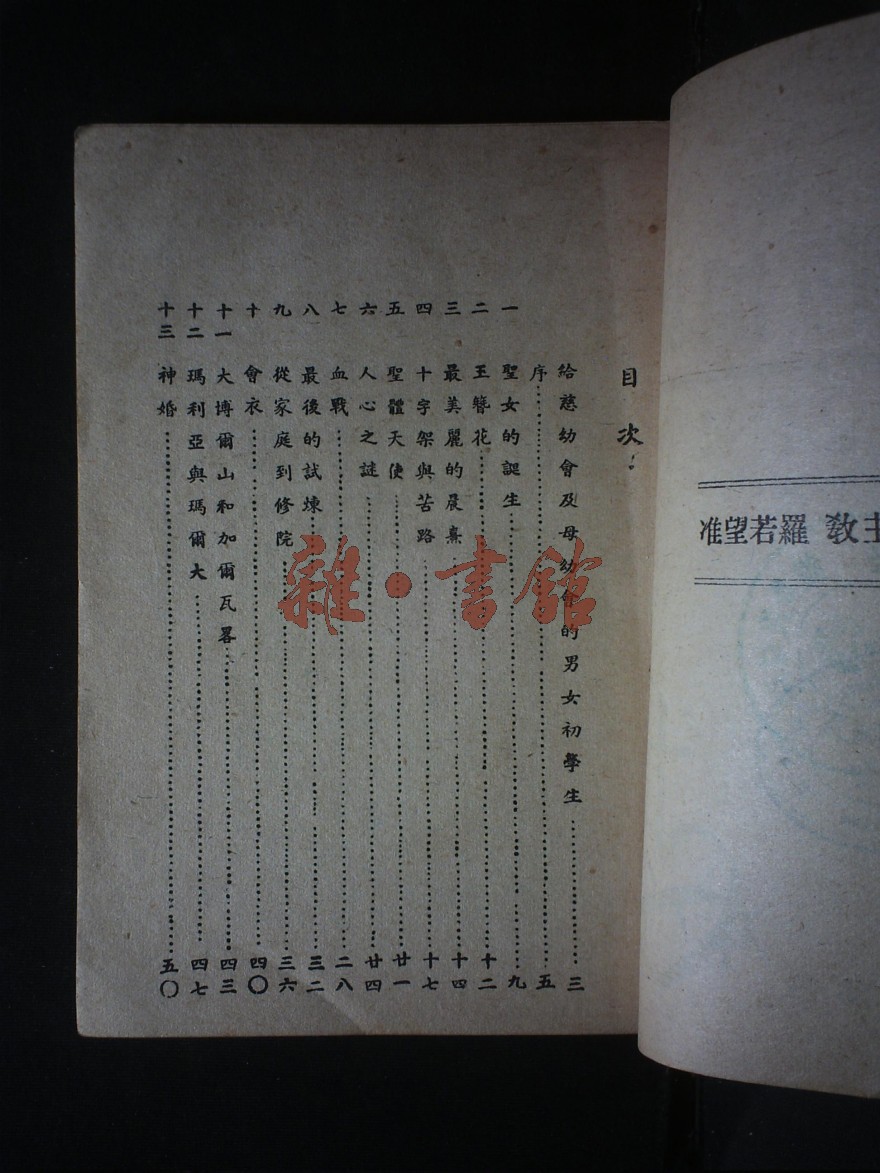 准望若羅 教主
目次：
給慈幼會及母幼會的男女初學生……三
序……五
一 聖女的誕生……九
二 玉簪花……十二
三 最美麗的晨熹……十四
四 十字架與苦路……十七
五 聖體天使……廿一
六 人心之謎……廿四
七 血戰……二八
八 最後的試煉……三二
九 從家庭到修院……三六
十 會衣……四〇
十一 大博爾山和加爾瓦畧……四三
十二 瑪利亞與瑪爾大……四七
十三 神婚……五〇
雜·書館